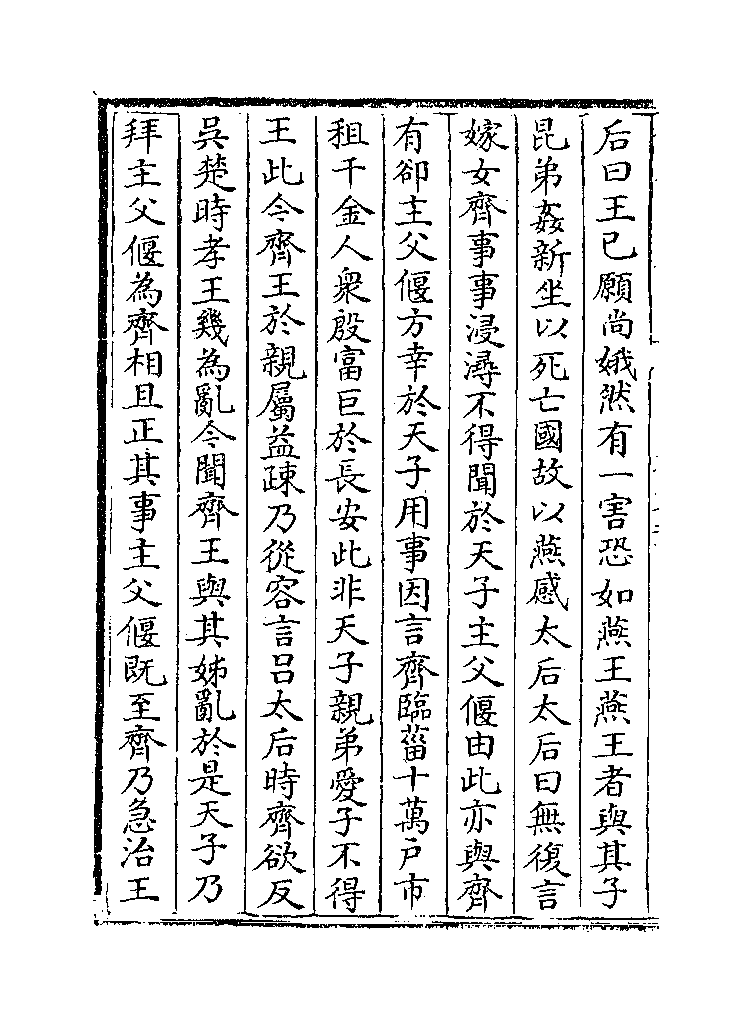 后曰王已願尚娥然有一害恐如燕王燕王者與其子
昆弟姦新坐以死亡國故以燕感太后太后曰無復言
嫁女齊事事浸潯不得聞於天子主父偃由此亦與齊
有卻主父偃方幸於天子用事因言齊臨菑十萬戶市
租千金人衆殷富巨於長安此非天子親弟愛子不得
王此今齊王於親屬益疎乃從容言吕太后時齊欲反
吳楚時孝王幾為亂今聞齊王與其姊亂於是天子乃
拜主父偃為齊相且正其事主父偃既至齊乃急治王